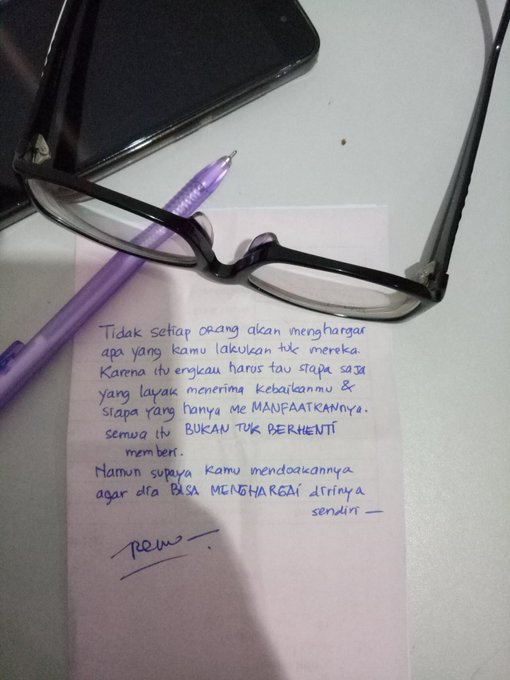 Tidak setiap orang akan menghargai
apa yang kamu lakukan tuk mereka.
Karena itu engkau harus tau siapa saja
yang layak menerima kebaikanmu &
siapa yang hanya me MANFAATKANnya.
semua itu BUKAN TUK BERHENTI
memberi.
Namun supaya kamu mendoakannya
agar dia BISA MENGHARGAI dirinya
sendiri —